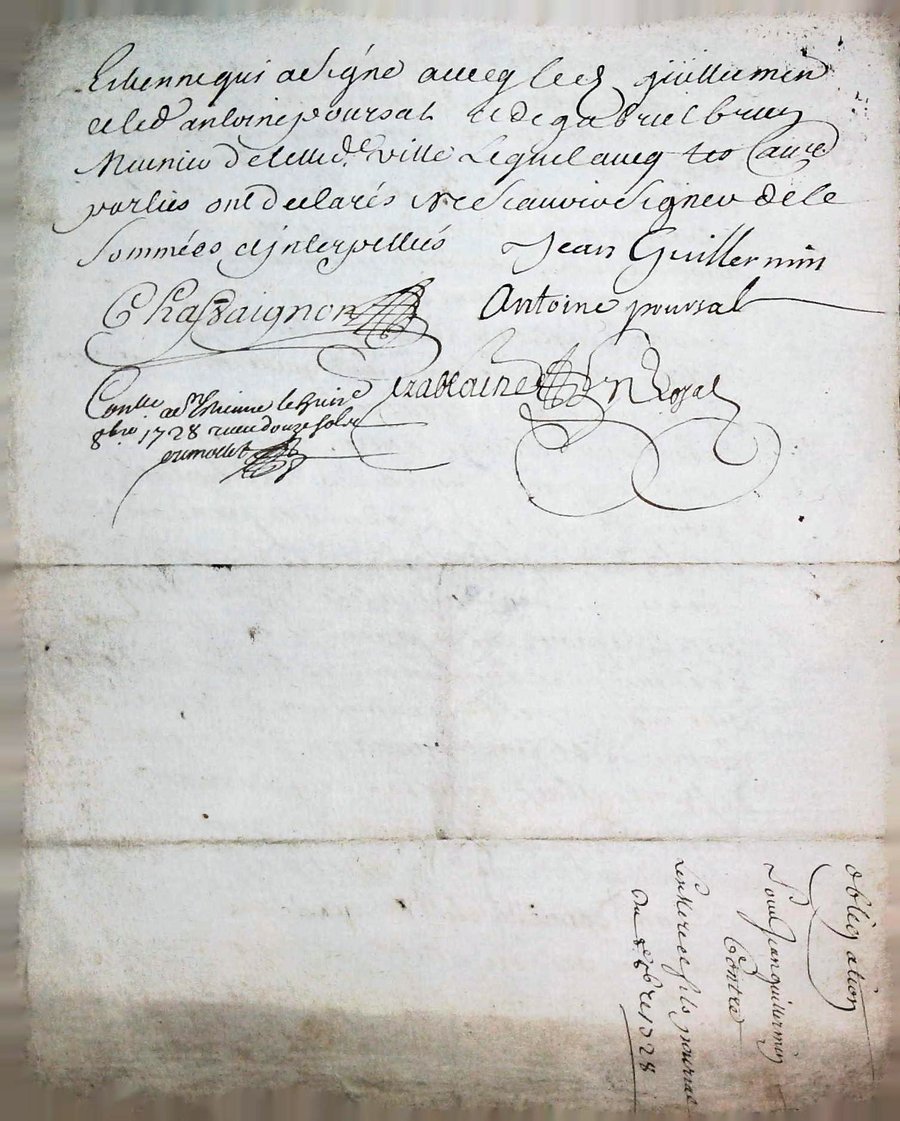 Estienne qui a Signé avecq les d guillermin
et led. antoine poursat et de gabriel brun
Munier de lad. ville Lequel avecq les autres
parties ont declarés ne Scavoir Signer de ce
Sommées et jnterpellés
Jean Guillermin
Chassaignon
Antoine poursat
Royal
Con'lle a St Etienne le huit
8bre 1728 receu douze sols
obligation
Pour Jean guillermin
Contre
Les pere et fils poursat
Du 8bre 1728